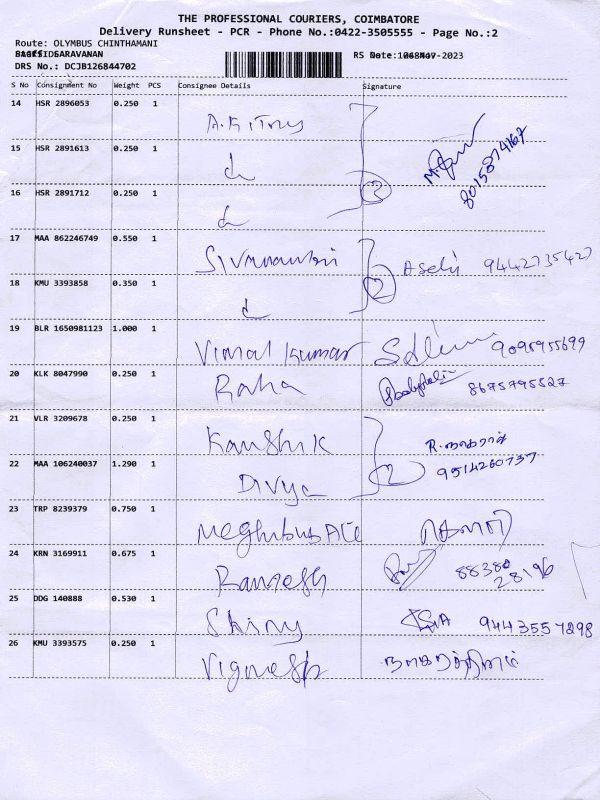 THE PROFESSIONAL COURIERS, COIMBATORE
Delivery Runsheet - PCR - Phone No.:0422-3505555 - Page No.:2
Route: OLYMBUS CHINTHAMANI
SARAVANAN
DRS No.: DCJB126844702
S No Consignment No Weight PCS Consignee Details Signature
14 HSR 2896053 0.250 1
15 HSR 2891613 0.250 1
16 HSR 2891712 0.250 1
17 MAA 862246749 0.550 1 9442735427
18 KMU 3393858 0.350 1
19 BLR 1650981123 1.000 1 Vimal Kumar 9095955699
20 KLK 8047990 0.250 1 Raha 8675795527
21 VLR 3209678 0.250 1 Kaushik
22 MAA 106240037 1.290 1 Divya 9514260737
23 TRP 8239379 0.750 1
24 KRN 3169911 0.675 1 Ramesh 88380 28196
25 DDG 140888 0.530 1 Shiny 9443557298
26 KMU 3393575 0.250 1 Vignesh